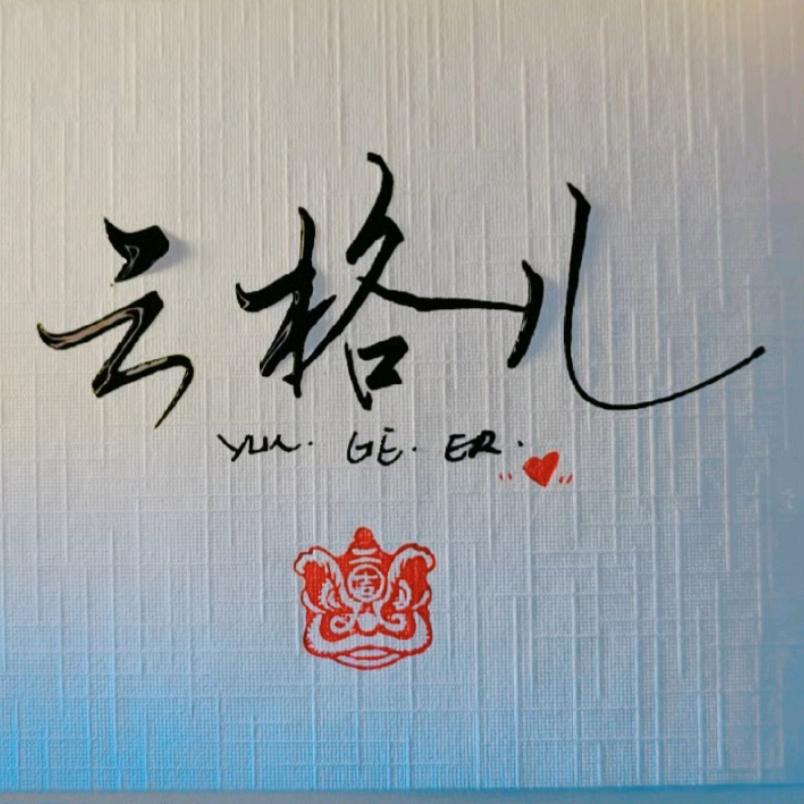 云格儿
YUN. GE. ER.
吉